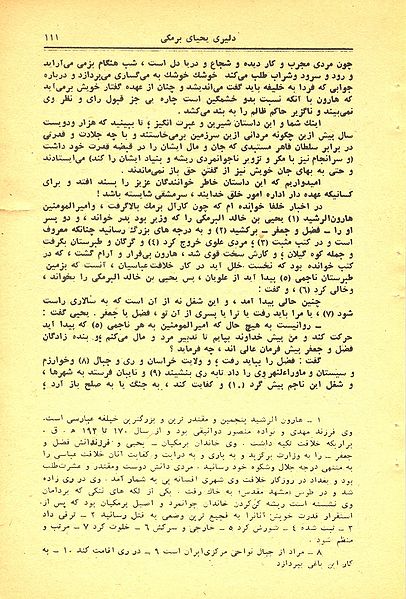 دلیری یحیای برمکی ۱۱۱
چون مردی مجرب و کار دیده و شجاع و دریا دل است ، شب هنگام بزمی می‌آراید
و رود و سرود وشراب طلب می‌کند خوشك خوشك به می‌گساری می‌پردازد و درباره
جوابی که فردا به خلیفه باید گفت می‌اندیشد و چنان از عهده گفتار خویش برمی‌آید
که هارون با آنکه نسبت بدو خشمگین است چاره یی جز قبول رای و نظر وی
نمی‌بیند و ناگزیر حاکم ظالم را به بند می‌کشد .
اینك شما و این داستان شیرین و عبرت انگیز ؛ تا ببینید که هزار ودویست
سال پیش ازین چگونه مردانی ازین سرزمین برمی‌خاستند و با چه جلادت و قدرتی
در برابر سلطان قاهر مستبدی که جان و مال ایشان را در قبضه قدرت خود داشت
(و سرانجام نیز با مکر و تزویر ناجوانمردی ریشه و بنیاد ایشان را کند) می‌ایستادند
و حتی به بهای جان خویش نیز از گفتن حق باز نمی‌ماندند .
امیدواریم که این داستان خاطر خوانندگان عزیز را پسند افتد و برای
کسانیکه عهده دار اداره امور خلق خدایند ، سرمشقی شایسته باشد !
در اخبار خلفا خوانده ام که چون کارآل برمك بالاگرفت ، وامیرالمومنین
هارون‌الرشید (۱) یحیی بن خالد البرمکی را که وزیر بود پدر خواند ، و دو پسر
او را ـ فضل و جعفر ـ برکشید (۲) و به درجه های بزرگ رسانید چنانکه معروف
است و در کتب مثبت (۳) ؛ مردی علوی خروج کرد (۴) و گرگان و طبرستان بگرفت
و جمله کوه گیلان ، و کارش سخت قوی شد ، هارون بی‌قرار و آرام گشت ، که در
کتب خوانده بود که نخست خلل آید در کار خلافت عباسیان ، آنست که بزمین
طبرستان ناجمی (۵) پیدا آید از علویان ، پس یحیی بن خالد البرمکی را بخواند ،
وخالی کرد (۶) ، و گفت :
چنین حالی پیدا آمد ، و این شغل نه از آن است که به سالاری راست
شود (۷) ، یا مرا باید رفت یا ترا یا پسری از آن تو ، فضل یا جعفر . یحیی گفت :
ـ روانیست به هیچ حال که امیرالمومنین به هر ناجمی (۵) که پیدا آید
حرکت کند و من پیش خداوند بپایم تا تدبیر مرد و مال می‌کنم و بنده زادگان
فضل و جعفر پیش فرمان عالی اند ، چه فرماید ؟
گفت : فضل را بباید رفت ، و ولایت خراسان و ری و جبال (۸) وخوارزم
و سیستان و ماوراءالنهر وی را داد تابه ری بنشیند (۹) و نایبان فرستد به شهرها ،
و شغل این ناجم پیش گرد (۱۰) و کفایت کند ، به جنگ یا به صلح باز آرد ؛
۱ ـ هارون الرشید پنجمین و مقتدر ترین و بزرگترین خلیفه عباسی است.
وی فرزند مهدی و نواده منصور دوانیقی بود و از سال ۱۷۰ تا ۱۹۳ ه . ق .
براریکه خلافت تکیه داشت . وی خاندان برمکیان ـ یحیی و فرزندانش فضل و
جعفر ـ را به وزارت برگزید و به یاری و به درایت و کفایت آنان خلافت عباسی را
به منتهی درجه جلال وشکوه خود رسانید . مردی دانش دوست ومقتدر و عشرت‌طلب
بود و بغداد در روزگار خلافت وی شهری افسانه یی به شمار آمد . وی در ری زاده
شد و در طوس (مشهد مقدس) به خاك رفت . یکی از لکه های ننگی که بردامان
وی نشسته است ریشه کن‌کردن خاندان جوانمرد و اصیل برمکیان بود که پس از
استقرار قدرت خویش آنانرا به فجیع ترین وضعی به قتل رسانید ۲ ـ ترقی داد
۳ ـ ثبت شده ۴ ـ شورش کرد ۵ ـ خارجی و سرکش ۶ ـ خلوت کرد ۷ ـ مرتب و
منظم شود .
۸ ـ مراد از جبال نواحی مرکزی‌ایران است ۹ ـ در ری اقامت کند ۱۰ ـ به
کار این یاغی بپردازد